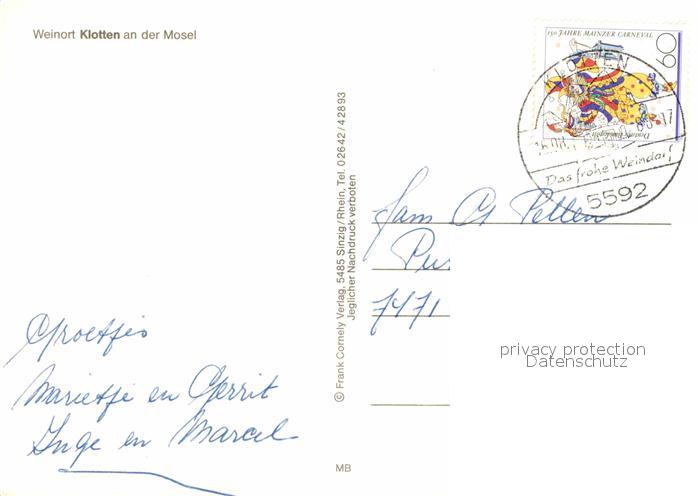 Weinort Klotten an der Mosel
150 JAHRE MAINZER CARNEVAL
60
Deutsche Bundespost
KLOTTEN
Das frohe Weindorf
5592
© Frank Cornely Verlag, 5485 Sinzig/Rhein, Tel. 02642/42893
Jeglicher Nachdruck verboten
Fam Pellen
7471
privacy protection
Datenschutz
Groetjes
Marietje en Gerrit
Inge en Marcel
MB